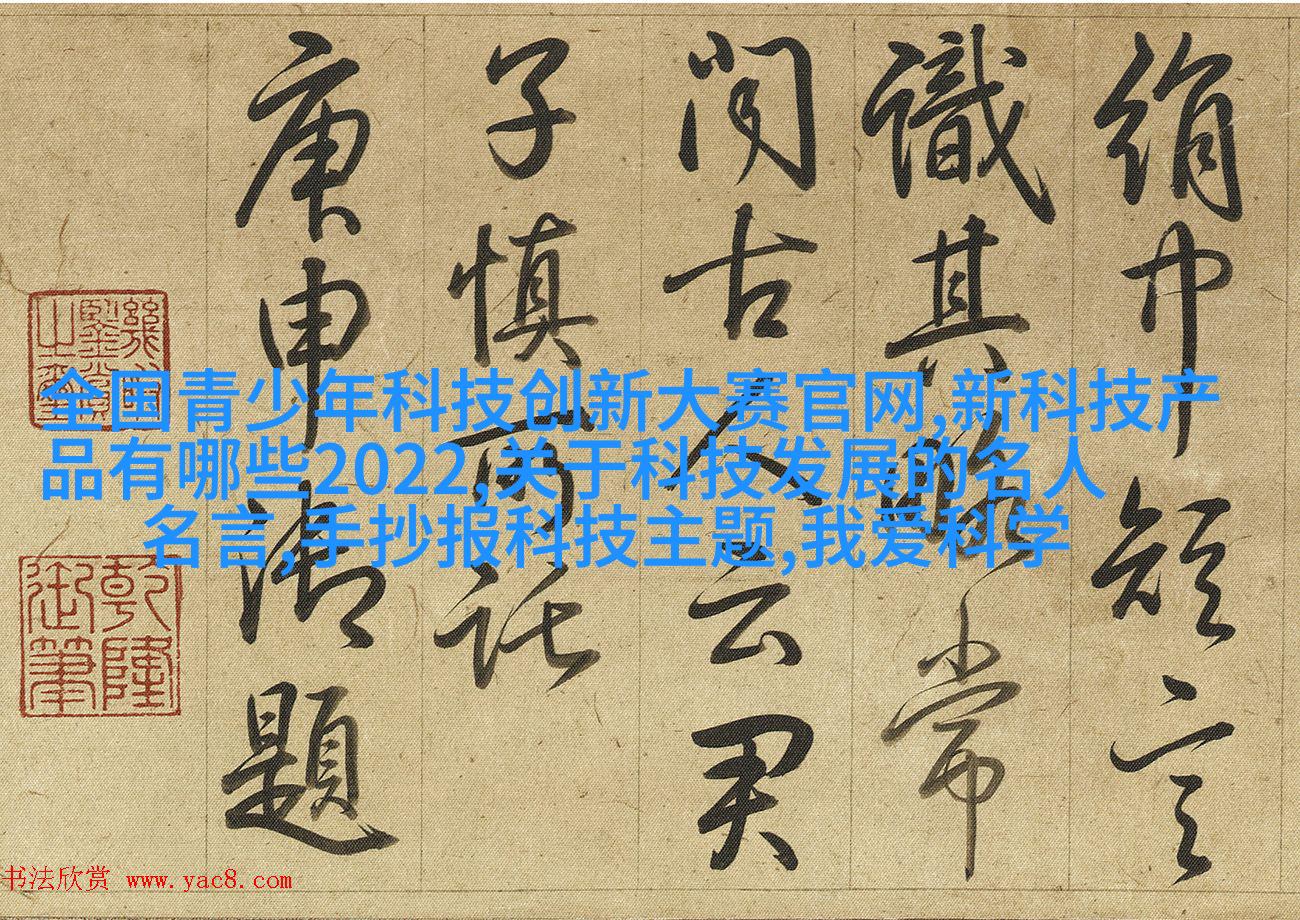 絹中短言
識其常
聞古人云君
子慎所託
庚申御題
幾暇鑒賞之璽
乾隆御筆
全国青少年科技创新大赛官网,新科技产
品有哪些2022,关于科技发展的名人
名言,手抄报科技主题,我爱科学
书法欣赏 www.yac8.com